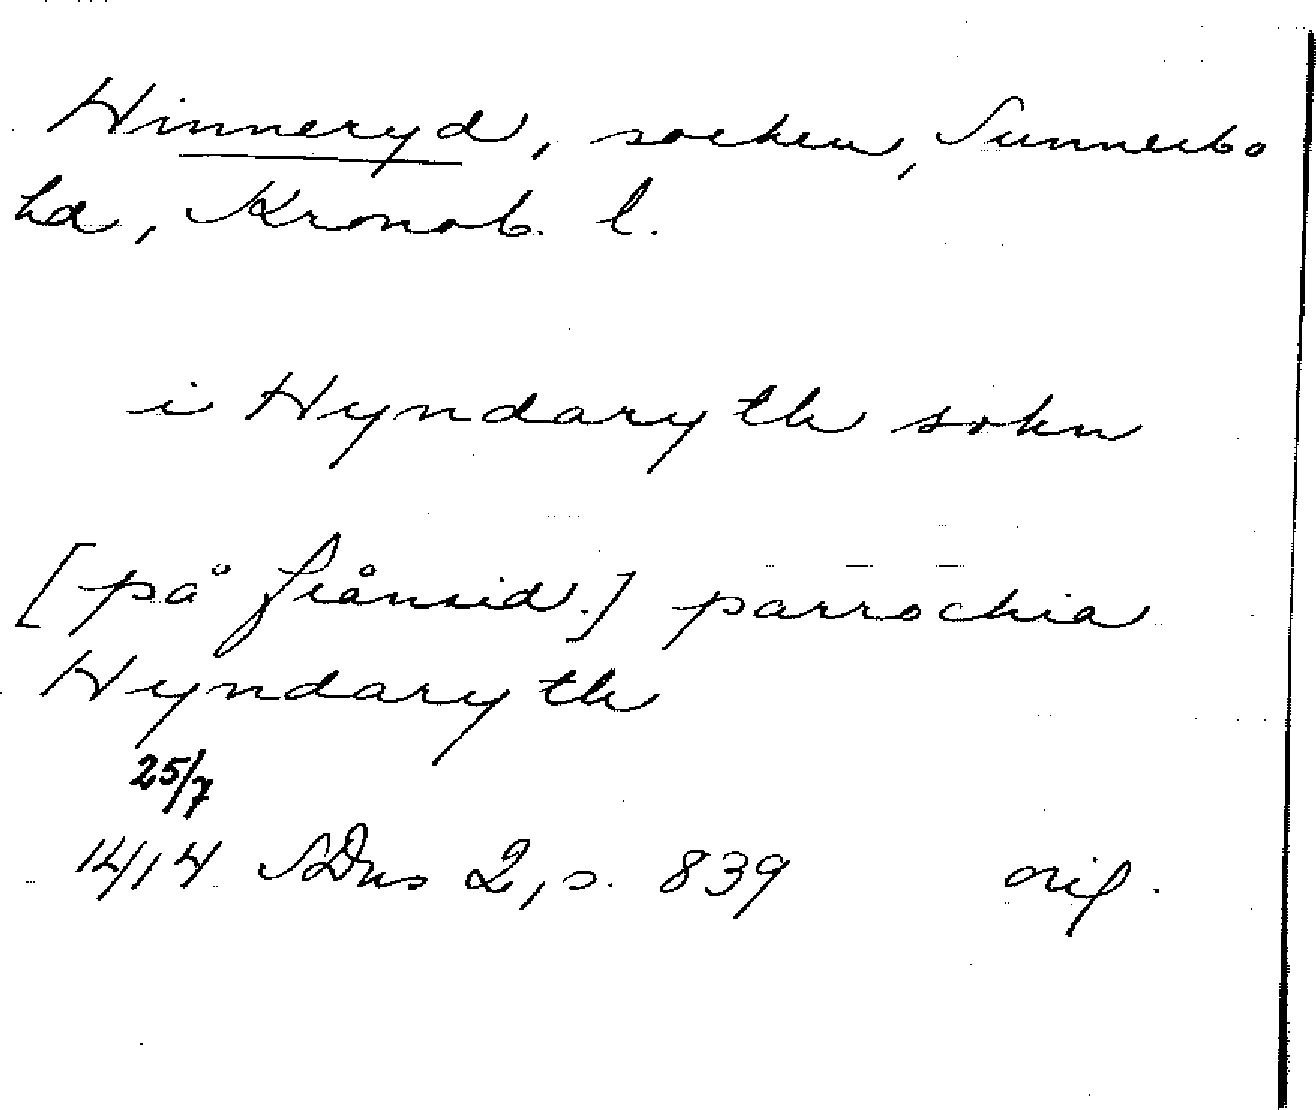 Hinneryd, socken, Sunnerbo
hd, Kronob. l.
i Hyndaryth sokn
[på frånsid.] parrochia
Hyndaryth
25/7
1414 SDns 2, s. 839 orig.